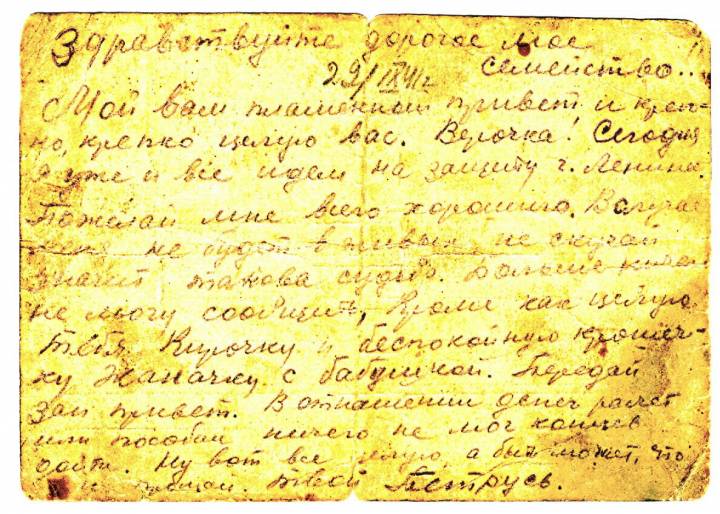 Здравствуйте дорогое мое
семейство..
29/IX 41г
Мой вам пламенный привет и креп-
ко, крепко целую вас. Верочка! Сегодня
я уже и все идем на защиту г. Ленин.
Пожелай мне всего хорошего. В случае
меня не будет в живых, не скучай
значит такова судьба. Больше ниче
не могу сообщить, кроме как целую
тебя Кирочку и беспокойную крошеч-
ку Жаначку с бабушкой. Передай
Зам привет. В отнашении денег расчет
или пособии ничего не мог
Ну вот все целую, а быть может, что
и прощай. Твой Петрусь.